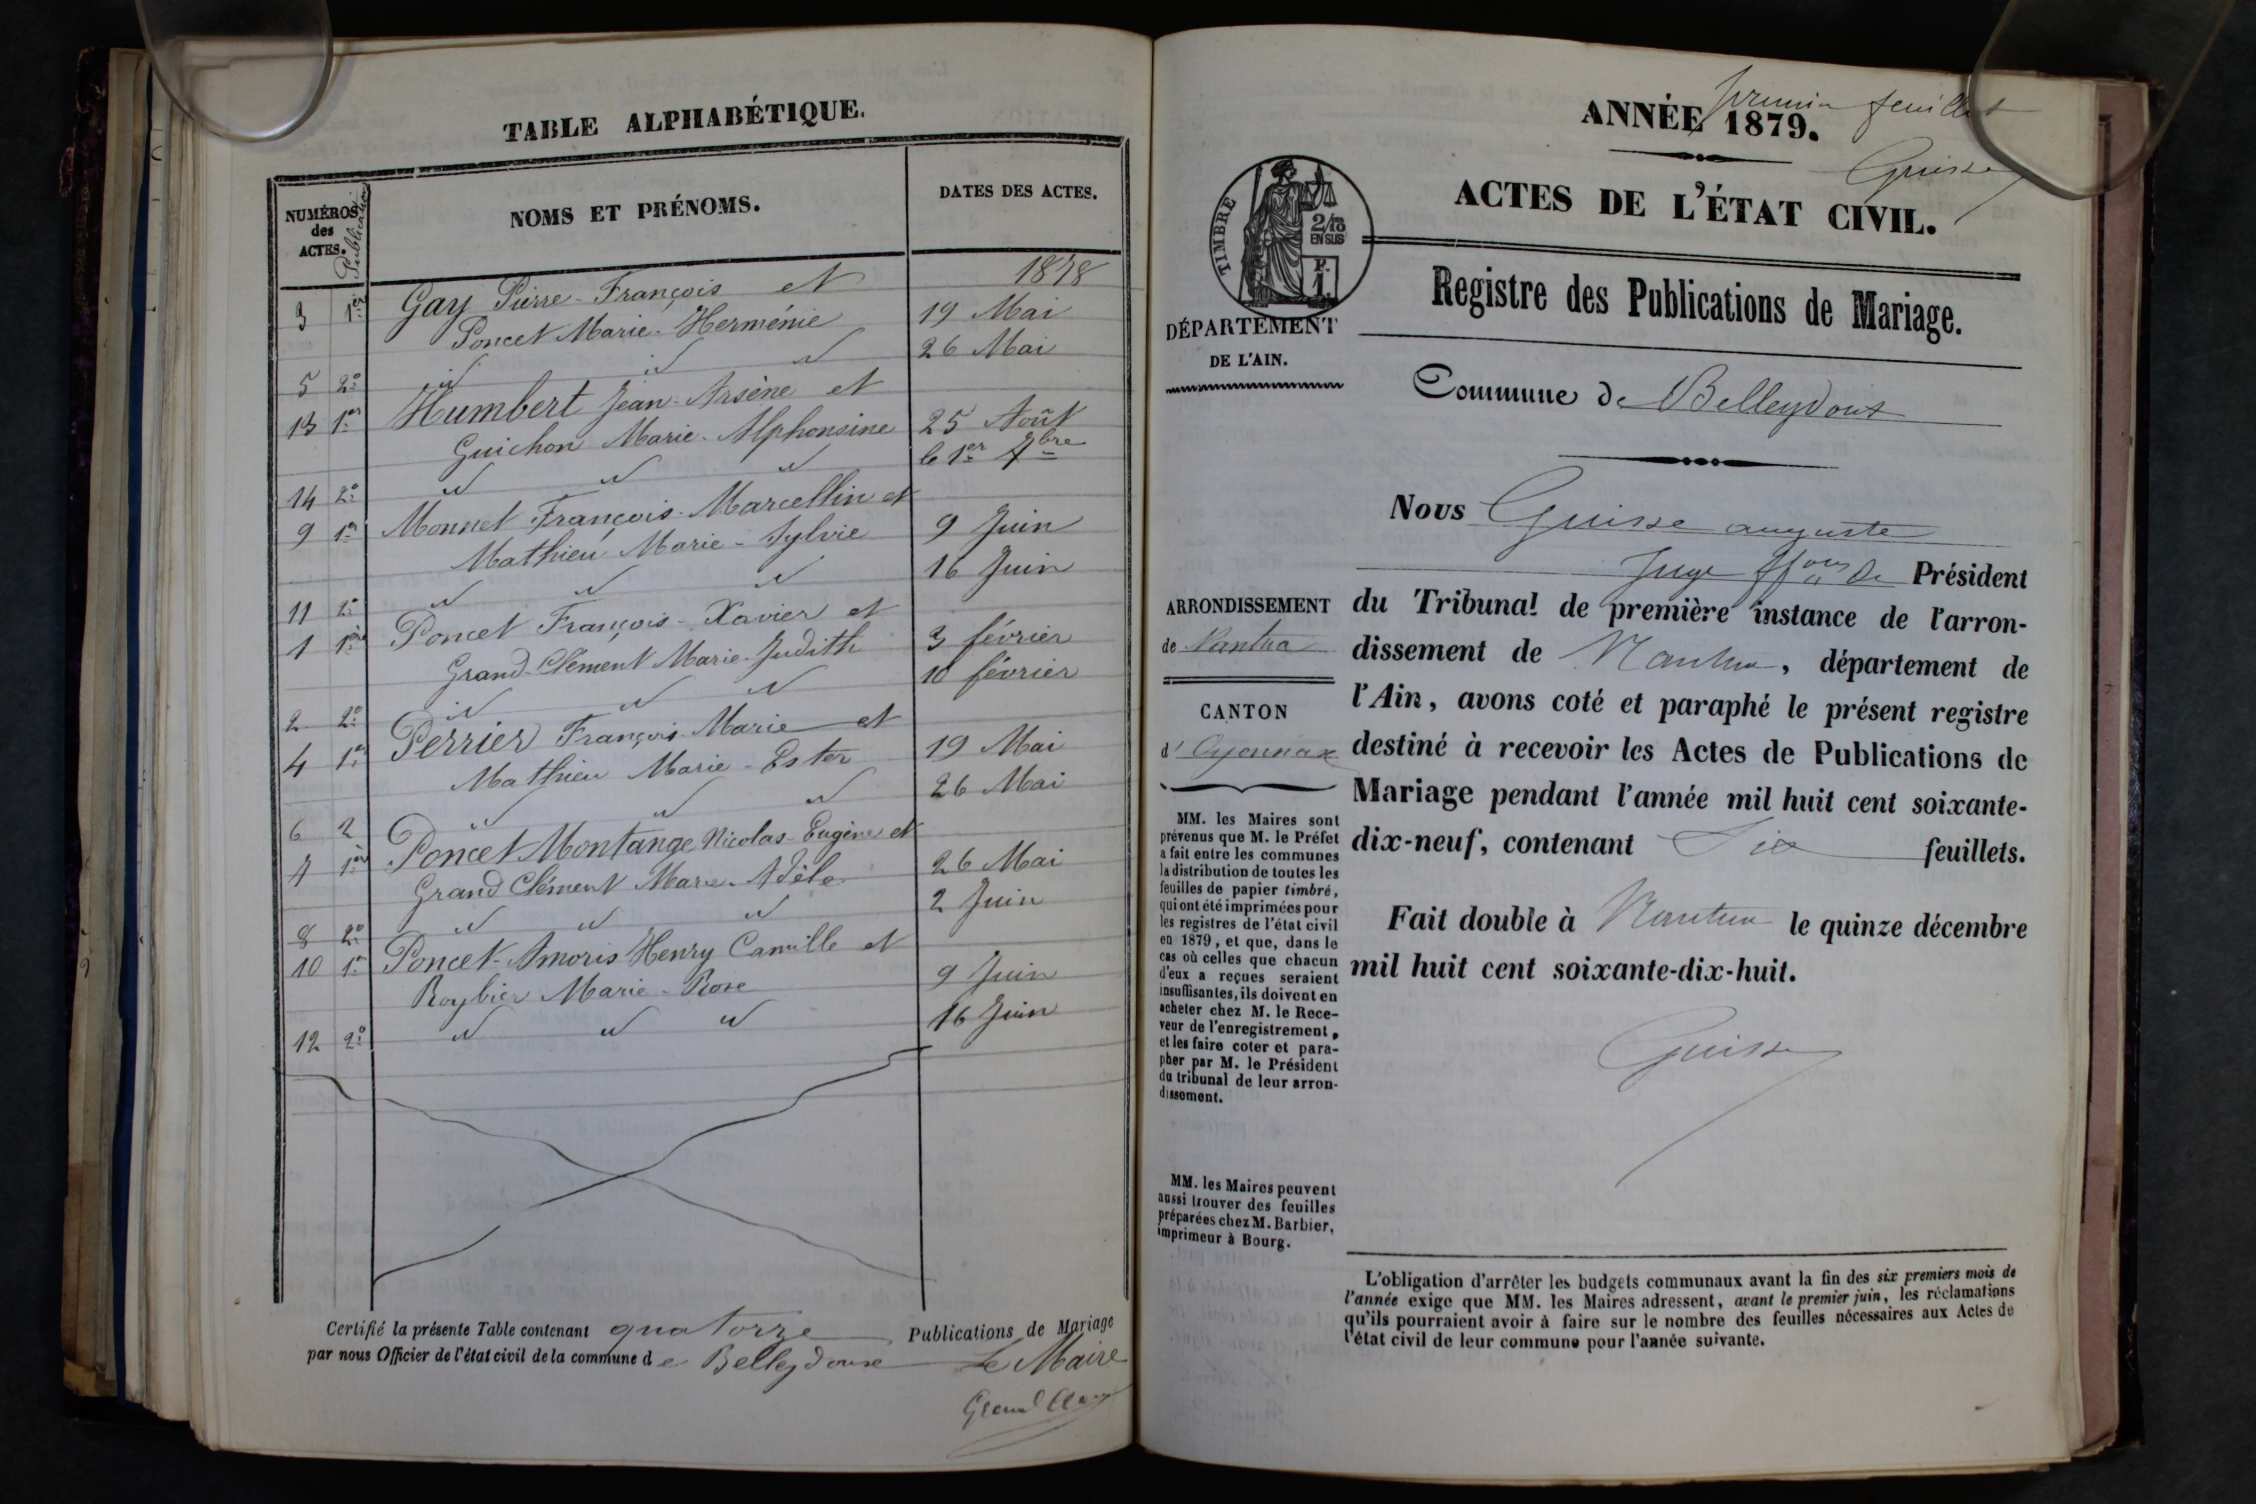 TABLE ALPHABÉTIQUE.
NUMÉROS
des
ACTES.
Publication
NOMS ET PRÉNOMS.
DATES DES ACTES.
1878
3 1re Gay Pierre-François et 19 Mai
Poncet Marie-Herménie 26 Mai
5 2e " " "
13 1re Humbert Jean-Arsène et 25 Août
Guichon Marie-Alphonsine le 1er 7bre
14 2e " " "
9 1re Monnet François-Marcellin et 9 Juin
Mathieu Marie-Sylvie 16 Juin
11 2e " " "
1 1re Poncet François-Xavier et 3 février
Grand-Clément Marie-Judith 10 février
2 2e " " "
4 1re Perrier François-Marie et 19 Mai
Mathieu Marie-Ester 26 Mai
6 2 " " "
7 1re Poncet Montange Nicolas-Eugène et 26 Mai
Grand Clément Marie-Adèle 2 Juin
8 2e " " "
10 1re Poncet-Amoris Henry Camille et 9 Juin
Roybier Marie-Rose 16 Juin
12 2e " " "
Certifié la présente Table contenant quatorze Publications de Mariage
par nous Officier de l'état civil de la commune de Belleydoux
Le Maire
Grand Clém
premier feuillet
Guisse
ANNÉE 1879.
ACTES DE L'ÉTAT CIVIL.
TIMBRE
2/10
EN SUS
F.
1
Registre des Publications de Mariage.
DÉPARTEMENT
DE L'AIN.
Commune de Belleydoux
Nous Guisse auguste
Juge ffons de Président
du Tribunal de première instance de l'arron-
dissement de Nantua, département de
l'Ain, avons coté et paraphé le présent registre
destiné à recevoir les Actes de Publications de
Mariage pendant l'année mil huit cent soixante-
dix-neuf, contenant Six feuillets.
Fait double à Nantua le quinze décembre
mil huit cent soixante-dix-huit.
Guisse
ARRONDISSEMENT
de Nantua
CANTON
d'Oyonnax
MM. les Maires sont
prévenus que M. le Préfet
a fait entre les communes
la distribution de toutes les
feuilles de papier timbré,
qui ont été imprimées pour
les registres de l'état civil
en 1879, et que, dans le
cas où celles que chacun
d'eux a reçues seraient
insuffisantes, ils doivent en
acheter chez M. le Rece-
veur de l'enregistrement,
et les faire coter et para-
pher par M. le Président
du tribunal de leur arron-
dissement.
MM. les Maires peuvent
aussi trouver des feuilles
préparées chez M. Barbier,
imprimeur à Bourg.
L'obligation d'arrêter les budgets communaux avant la fin des six premiers mois de
l'année exige que MM. les Maires adressent, avant le premier juin, les réclamations
qu'ils pourraient avoir à faire sur le nombre des feuilles nécessaires aux Actes de
l'état civil de leur commune pour l'année suivante.